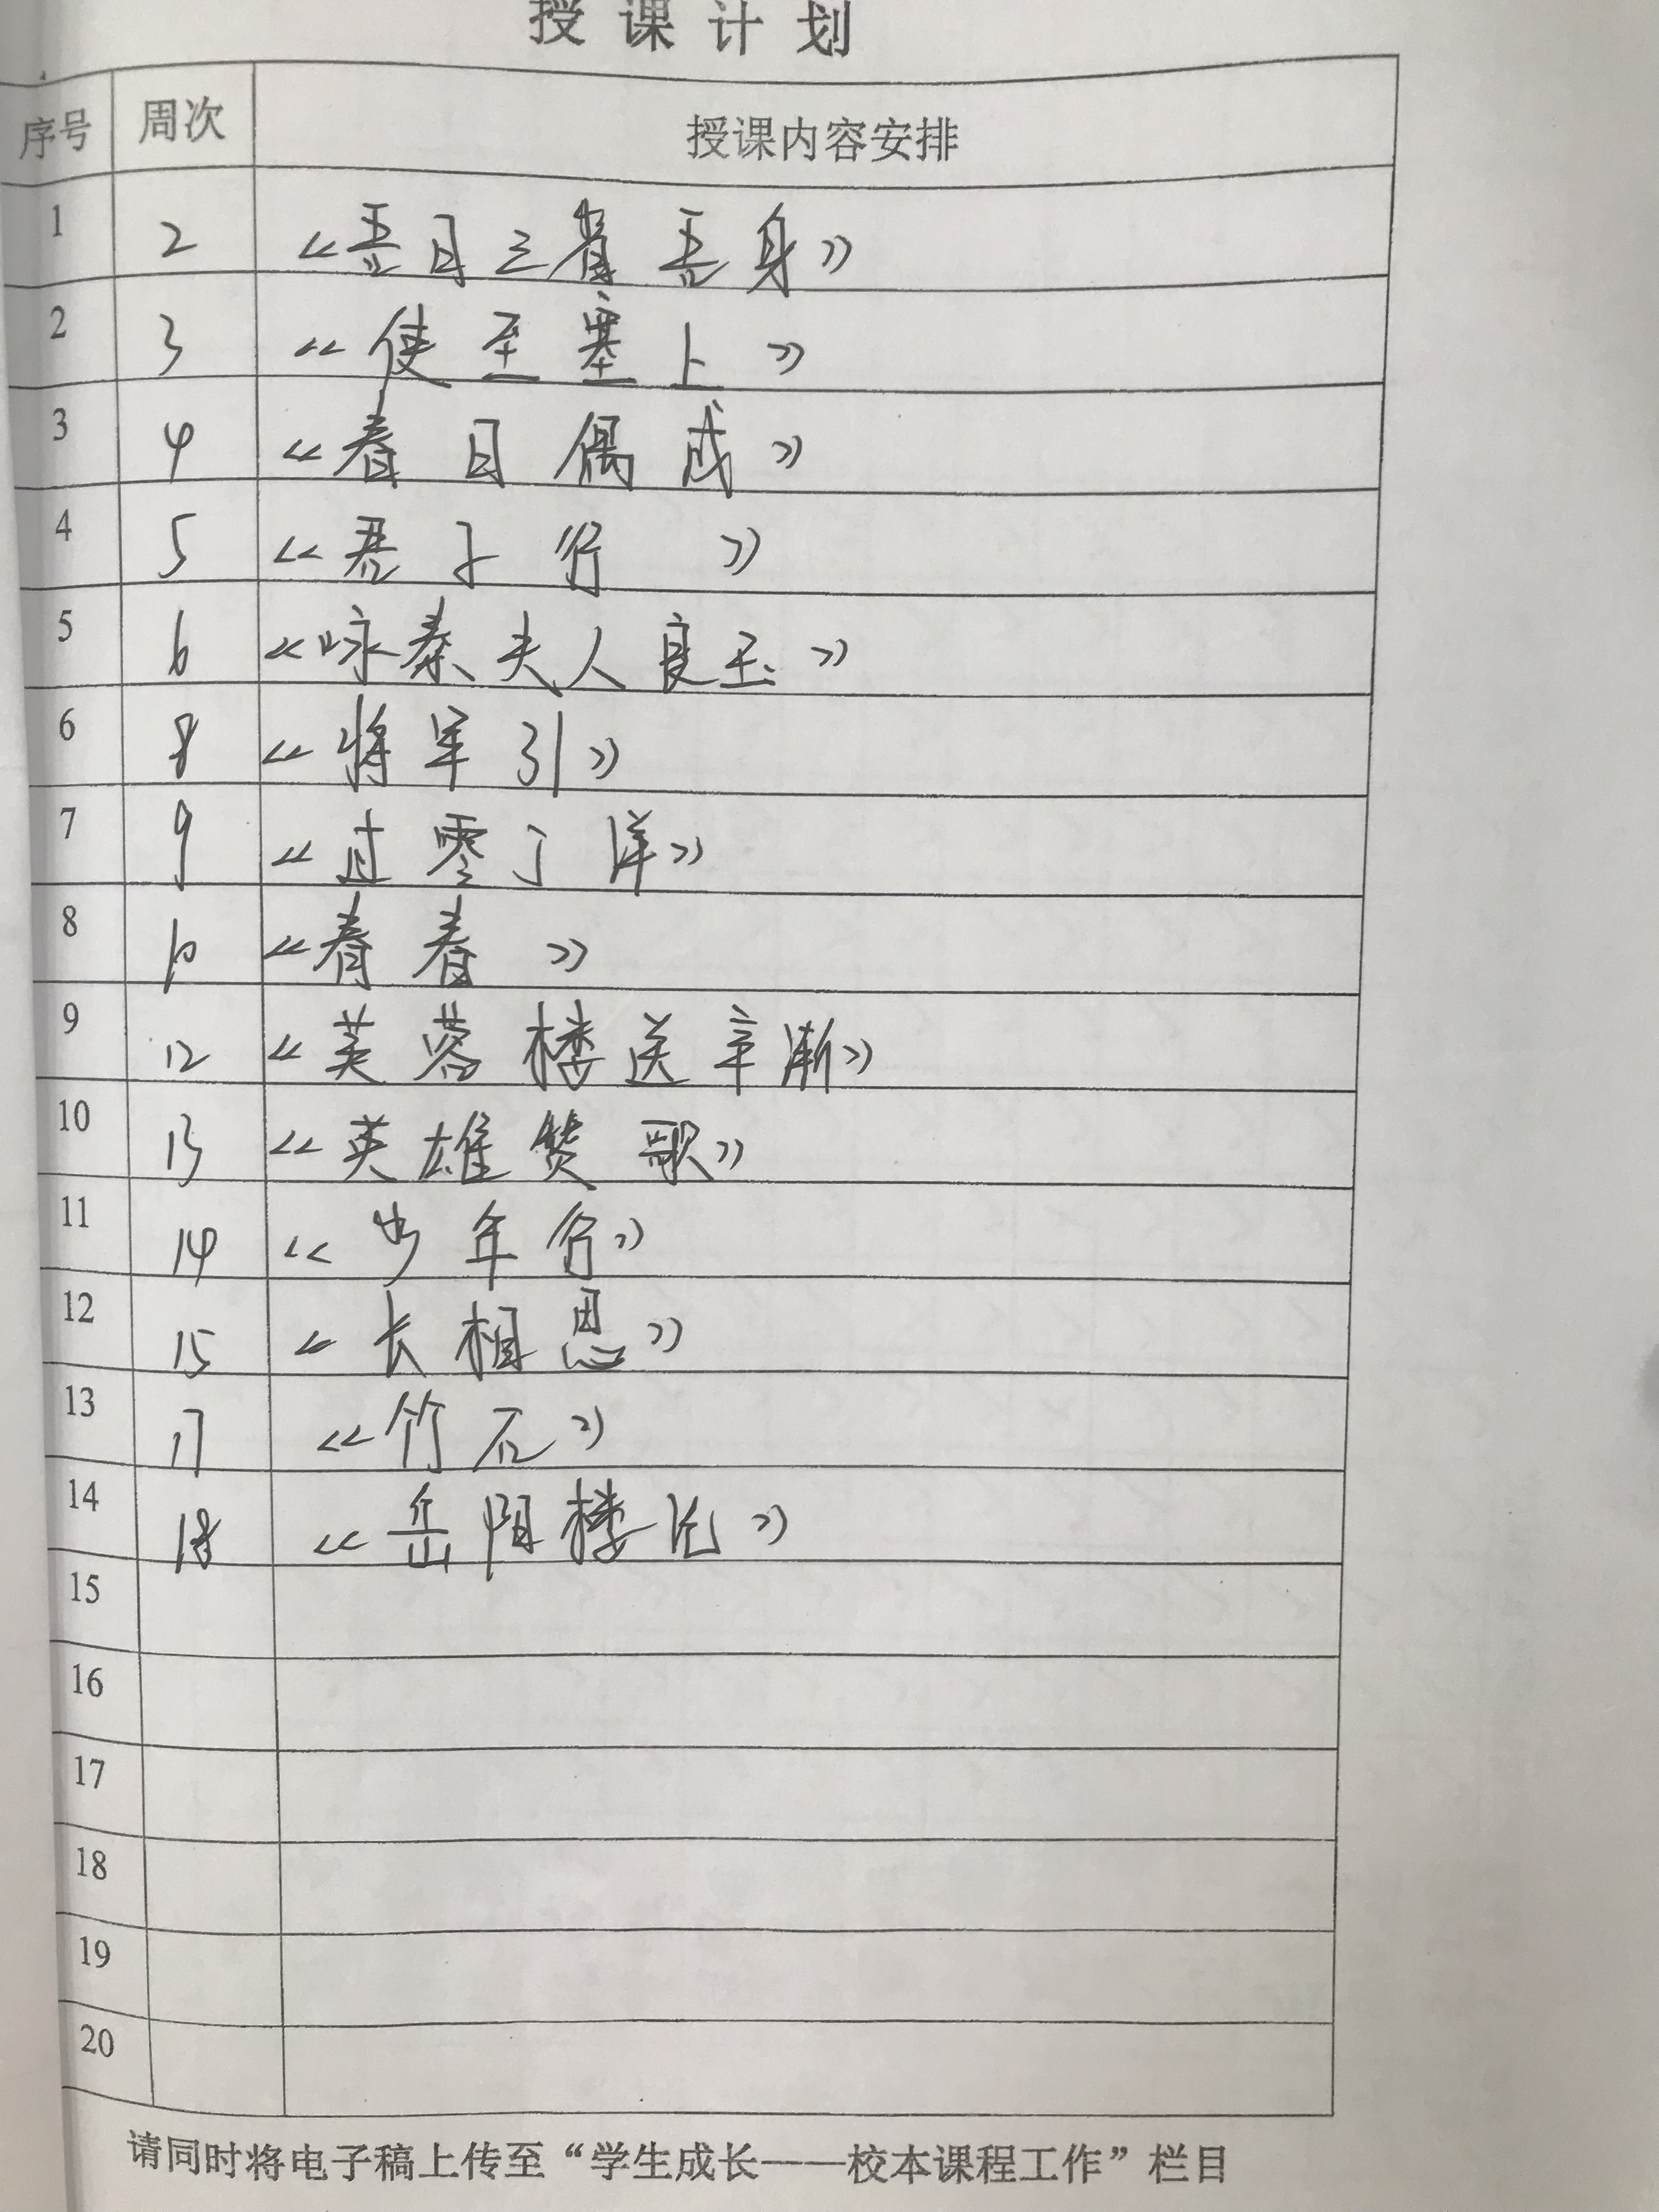 授课计划
序号 周次 授课内容安排
1 2 《吾日三省吾身》
2 3 《使至塞上》
3 4 《春日偶成》
4 5 《君子行》
5 6 《咏秦夫人良玉》
6 8 《将军引》
7 9 《过零丁洋》
8 10 《青春》
9 12 《芙蓉楼送辛渐》
10 13 《英雄赞歌》
11 14 《少年行》
12 15 《长相思》
13 17 《竹石》
14 18 《岳阳楼记》
15
16
17
18
19
20
请同时将电子稿上传至“学生成长——校本课程工作”栏目